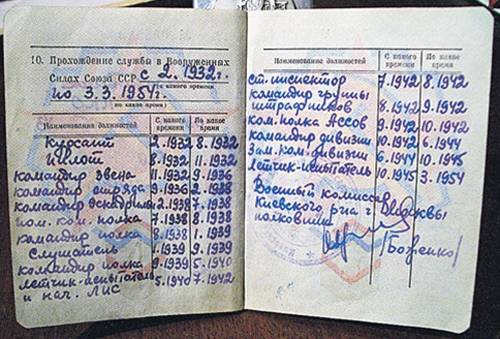 10. Прохождение службы в Вооруженных
Силах Союза ССР с 2.1932г.
(с какого времени
по 3.3.1954г.
по какое время)
Наименование должностей С какого времени По какое время
Курсант 2.1932 8.1932
Пилот 8.1932 11.1932
командир звена 11.1932 9.1936
командир отряда 9.1936 2.1938
командир эскадрильи 2.1938 7.1938
пом. ком. полка 7.1938 8.1938
командир полка 8.1938 1.1939
Слушатель 1.1939 9.1939
командир полка 9.1939 5.1940
летчик-испытатель 5.1940 7.1942
и нач. ЛИС
Наименование должностей С какого времени По какое время
ст. инспектор 7.1942 8.1942
командир группы
штрафников 8.1942 9.1942
ком. полка Ассов 9.1942 10.1942
командир дивизии 10.1942 6.1944
Зам. ком. дивизии 6.1944 10.1945
летчик-испытатель 10.1945 3.1954
Военный комиссар
Киевского р-на г. Москвы
полковник
/Боженко/